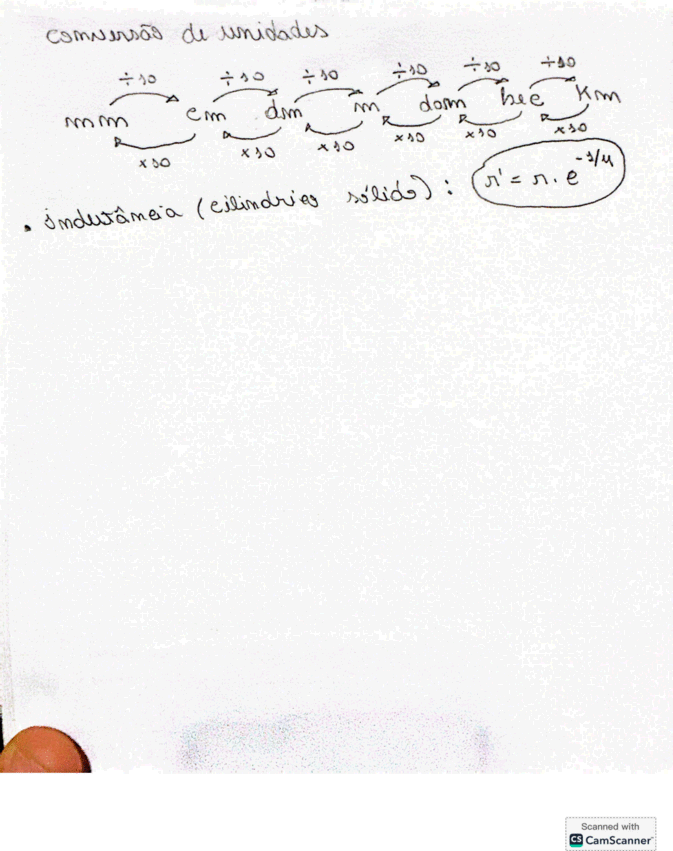 conversão de unidades
÷10 ÷10 ÷10 ÷10 ÷10 ÷10
mm cm dm m dam hec km
x10 x10 x10 x10 x10 x10
• indutância (cilindrico sólido): r' = r . e^-1/4
Scanned with
CS CamScanner